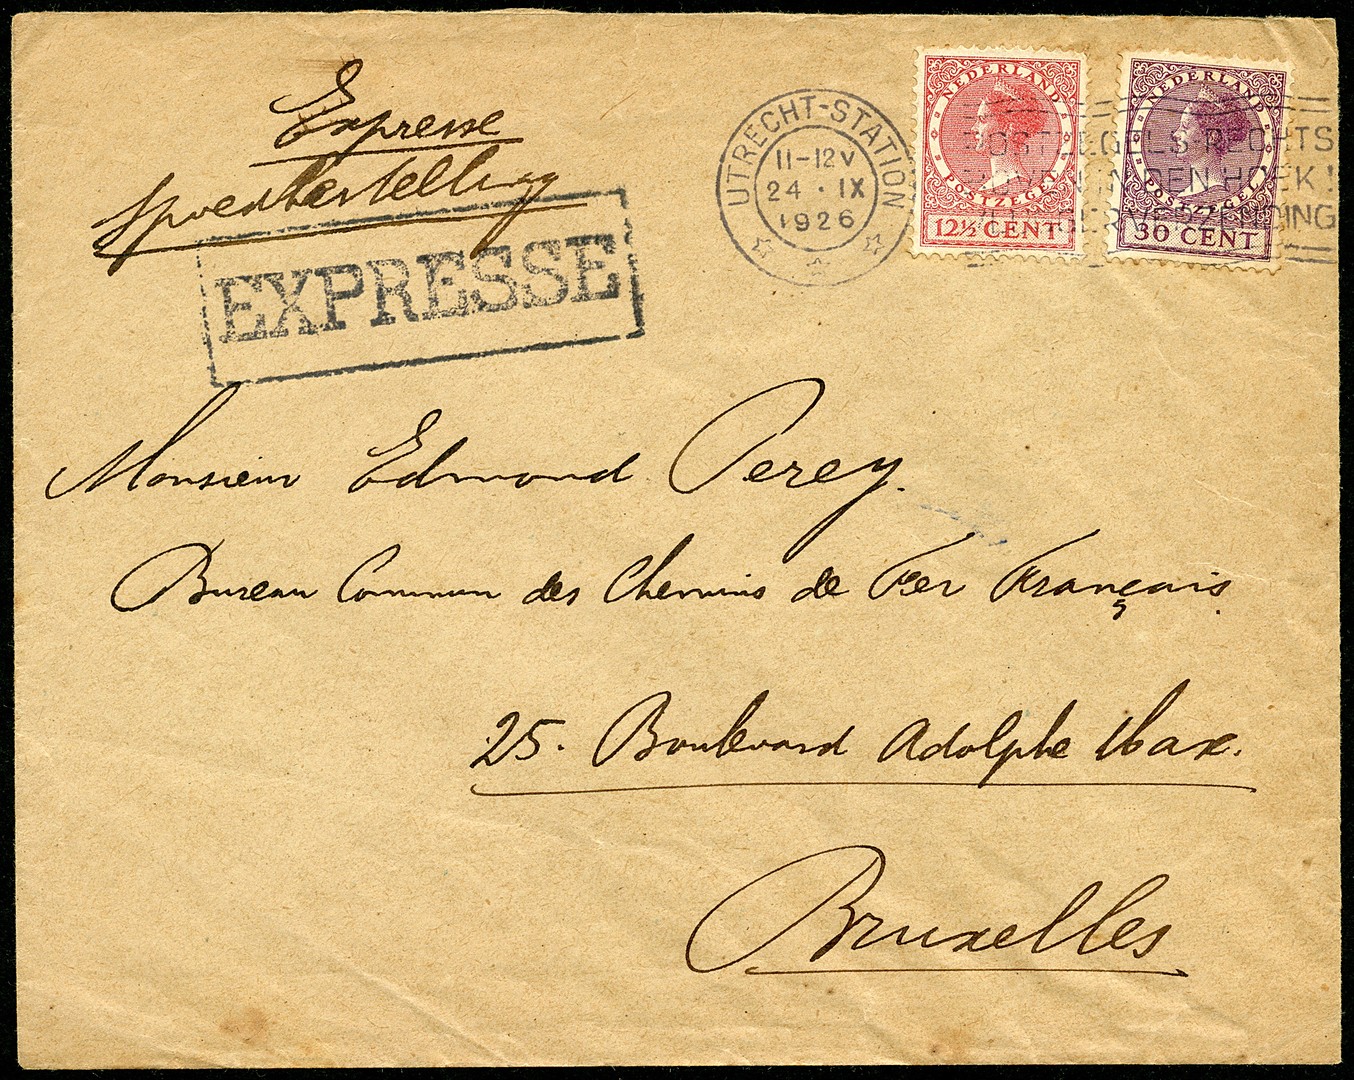 Expresse
Spoedbestelling
EXPRESSE
UTRECHT-STATION
11-12V
24 · IX
1926
NEDERLAND
POSTZEGEL
12½ CENT
NEDERLAND
POSTZEGEL
30 CENT
POSTZEGELS RECHTS
BOVEN IN DEN HOEK!
Monsieur Edmond Perey.
Bureau Commun des Chemins de Fer Français.
25. Boulevard Adolphe Max.
Bruxelles